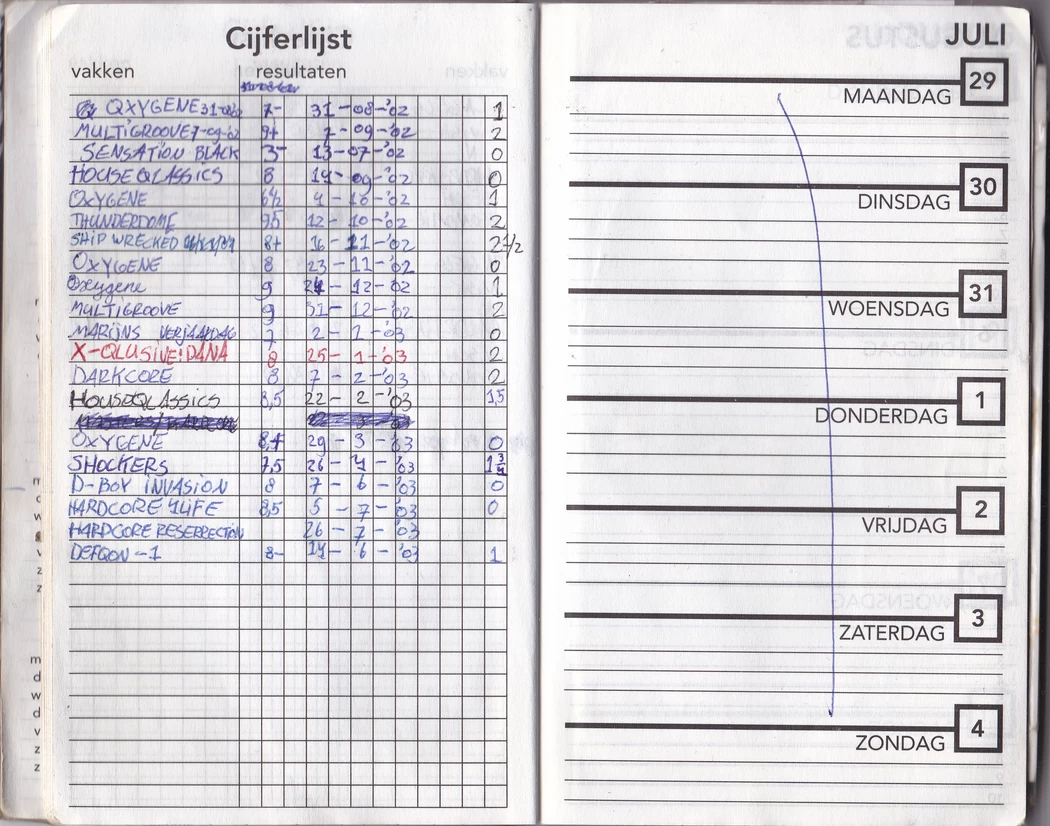 Cijferlijst
vakken resultaten
OXYGENE 31-08-02 7- 31-08-'02 1
MULTIGROOVE 7-09-02 9+ 7-09-'02 2
SENSATION BLACK 3- 13-07-'02 0
HOUSEQLASSICS 8 14-09-'02 0
OXYGENE 6½ 4-10-'02 1
THUNDERDOME 9,5 12-10-'02 2
SHIP WRECKED 8+ 16-11-'02 2 1/2
OXYGENE 8 23-11-'02 0
Oxygene 9 24-12-'02 1
MULTIGROOVE 9 31-12-'02 2
MARIJNS VERJAARDAG 7 2-2-'03 0
X-QLUSIVE: DANA 8 25-1-'03 2
DARKCORE 8 7-2-'03 2
HOUSEQLASSICS 8,5 22-2-'03 1,5
OXYGENE 8,4 29-3-'03 0
SHOCKERS 7,5 26-4-'03 1 3/4
D-BOY INVASION 8 7-6-'03 0
HARDCORE 4LIFE 8,5 5-7-'03 0
HARDCORE RESERRECTION 26-7-'03
DEFQON-1 8- 14-6-'03 1
m
d
w
d
v
z
z
JULI
29
MAANDAG
30
DINSDAG
31
WOENSDAG
1
DONDERDAG
2
VRIJDAG
3
ZATERDAG
4
ZONDAG